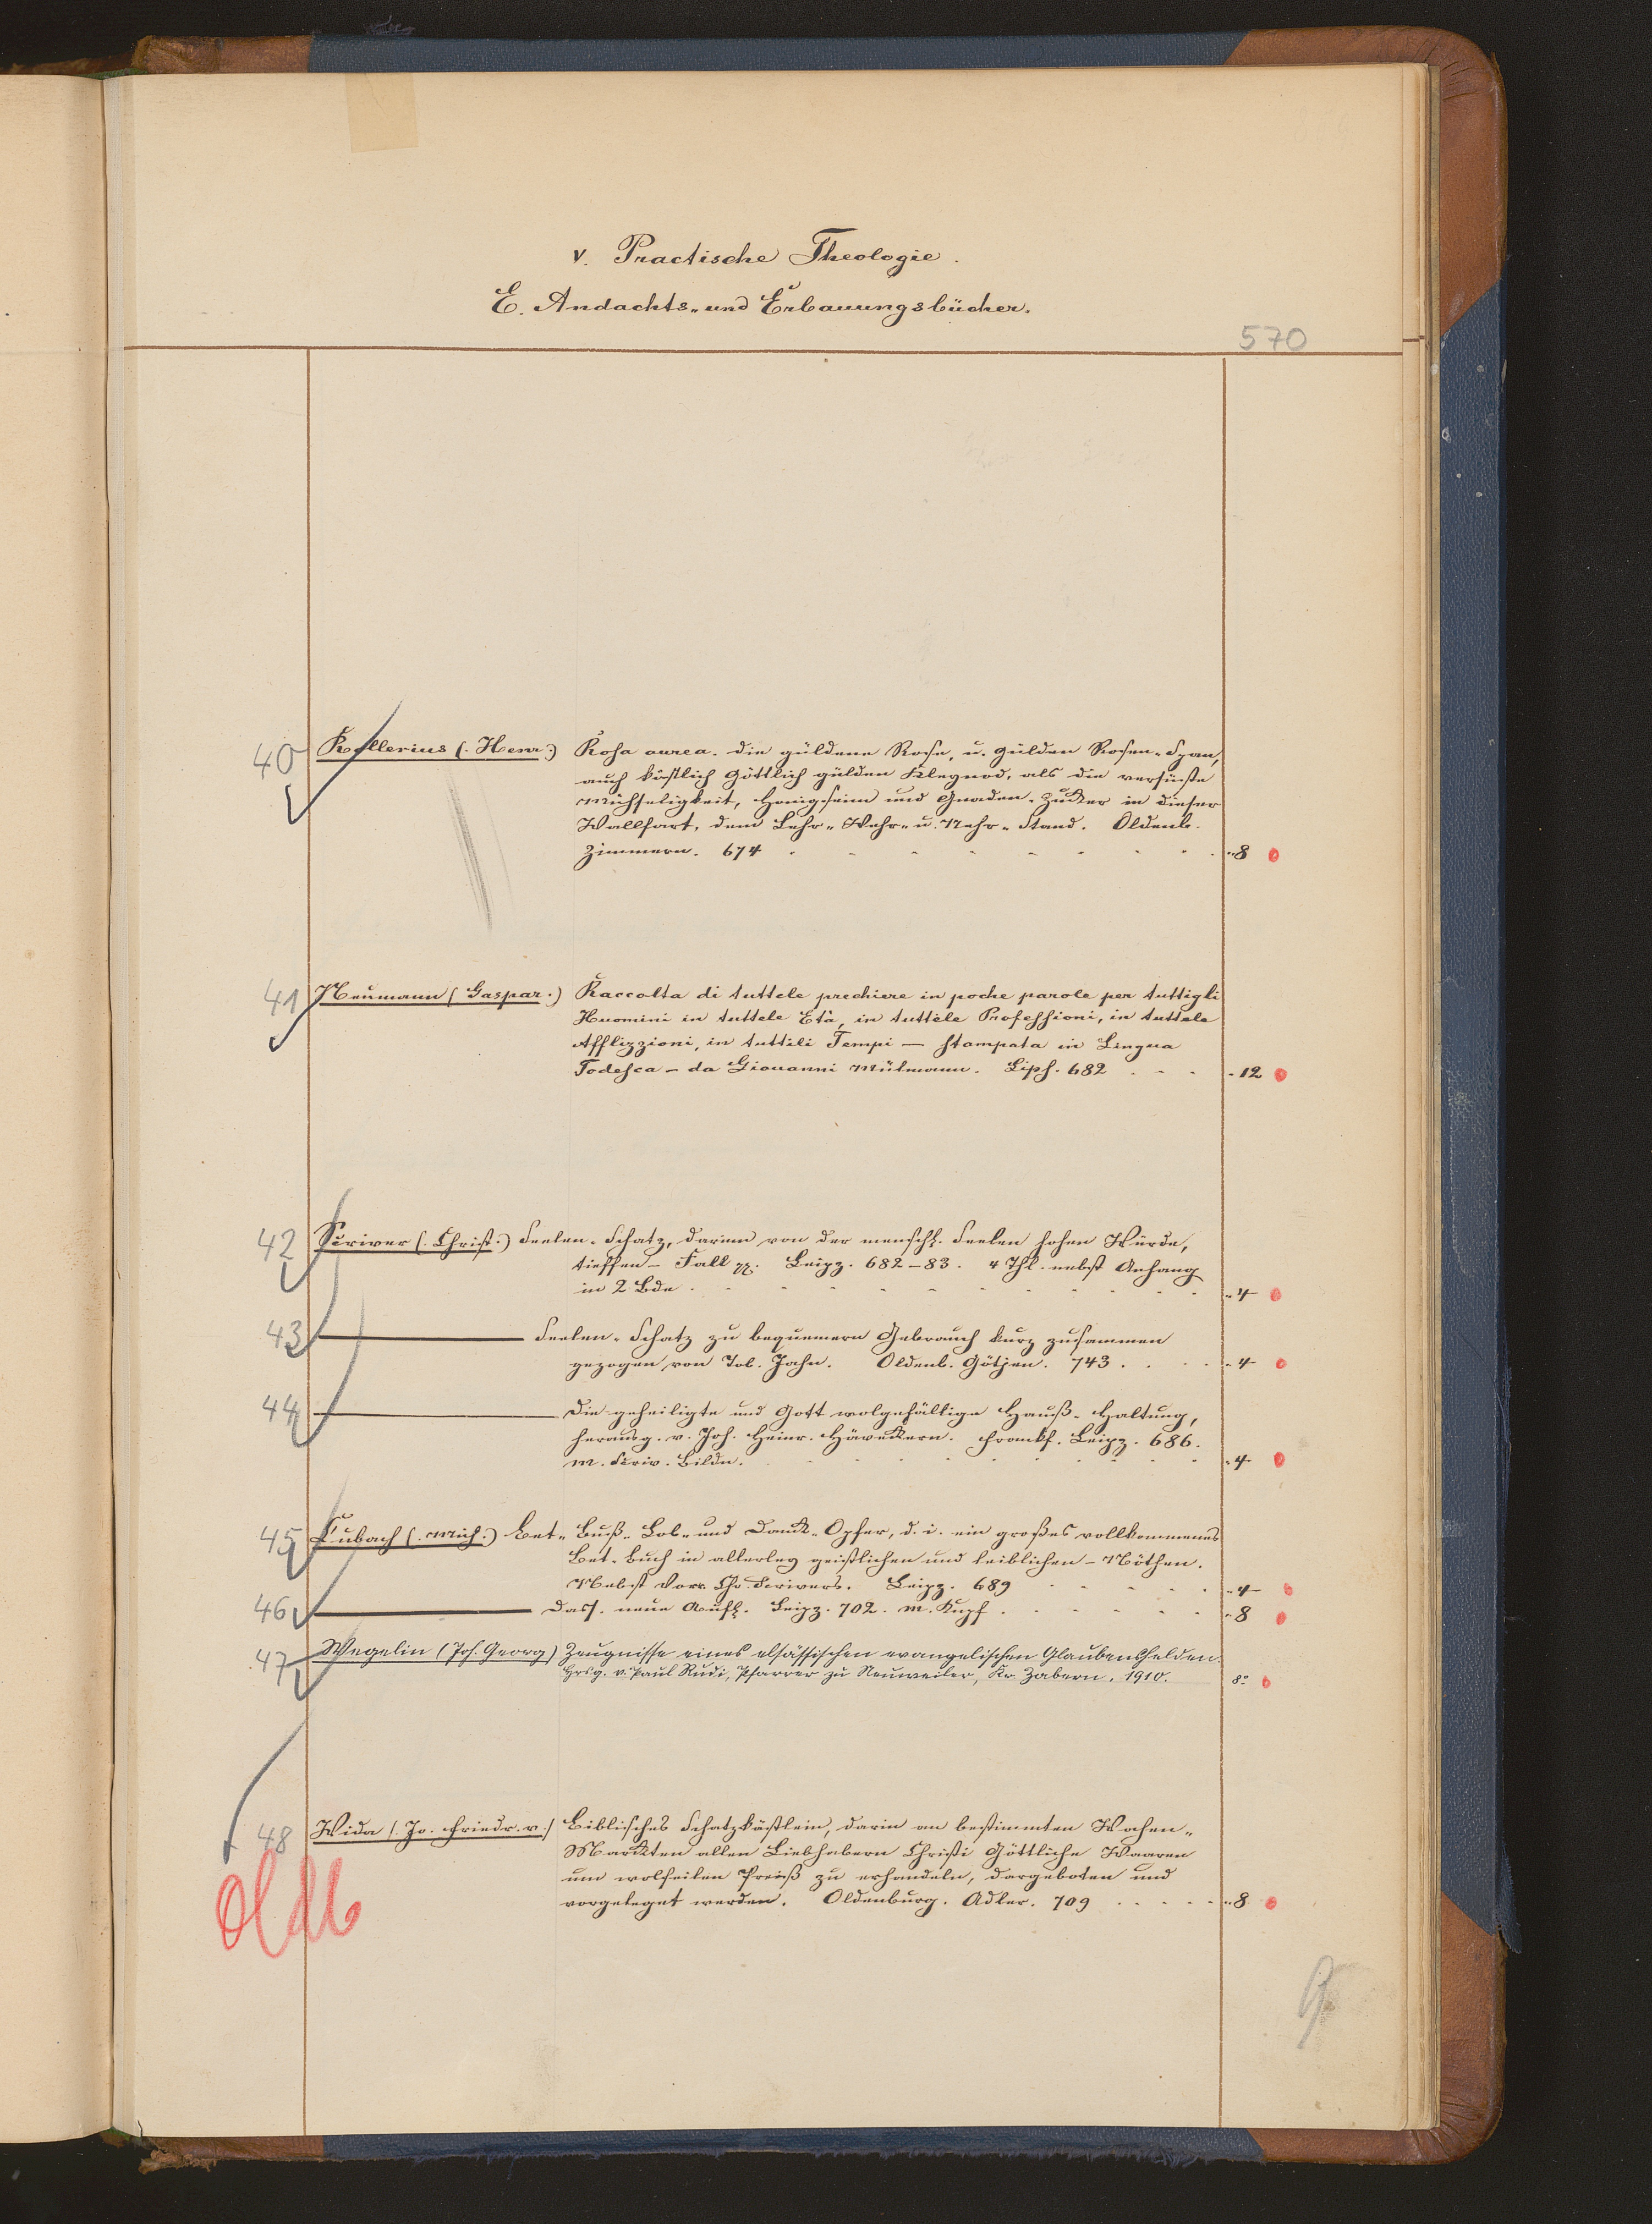 V. Practische Theologie.
E. Andachts- und Erbauungsbücher.
570
40 Kellerius (. Henr:) Rosa aurea. die güldene Rose, u. gülden Rosen-Span,
auch köstlich Göttlich gülden Klegnod, als die versüßte
Mühseligkeit, Honigseim und Gnaden-Zucker in dieser
Wallfart, dem Lehr- Wehr- u. Nehr-Stand. Oldenb.
Zimmern. 674 - 8
41 Neumann (Gaspar.) Raccolta di tuttele prechiere in poche parole per tuttigli
Huomini in tuttele Età, in tuttele Professioni, in tuttele
Afflizzioni, in tuttili Tempi — stampata in Lingua
Todesca - da Giouanni Mülmann. Lips. 682 - 12
42 Scriver (. Christ.) Seelen-Schatz, darinn von der menschl. Seelen hohen Würde,
tieffen - Fall ꝛꝛ. Leipz. 682-83. 4 Thl. nebst Anhang
in 2 Bde. - 4
43 ——— Seelen-Schatz zu bequemern Gebrauch kurz zusammen
gezogen von Tob. Jahn. Oldenb. Götjen. 743. - 4
44 ——— Die geheiligte und Gott wolgefällige Hauß-Haltung,
herausg. v. Joh. Heinr. Häveckern. Franckf. Leipz. 686.
m. Scriv. Bildn. - 4
45 Cubach (. Mich:) Bet- Buß- Lob- und Danck-Opfer, d. i. ein großes vollkommenes
Bet-Buch in allerley geistlichen und leiblichen - Nöthen.
Nebst Vorr. Chr. Scrivers. Leipz. 689 - 4
46 ——— Dass. neue Aufl. Leipz. 702. m. Kupf. - 8
47 Wegelin (Joh. Georg) Zeugnisse eines elsässischen evangelischen Glaubenshelden.
Hrsg. v. Paul Rudi, Pfarrer zu Neuweiler, Kr. Zabern. 1910. 8°
48 Wida (. Jo. Friedr. v.) Biblisches Schatzkästlein, darin an bestimmten Wochen-
Marckten allen Liebhabern Christi Göttliche Waaren
um wolfeilen Preiß zu erhandeln, dargeboten und
vorgeleget werden. Oldenburg. Adler. 709 - 8
Oldb